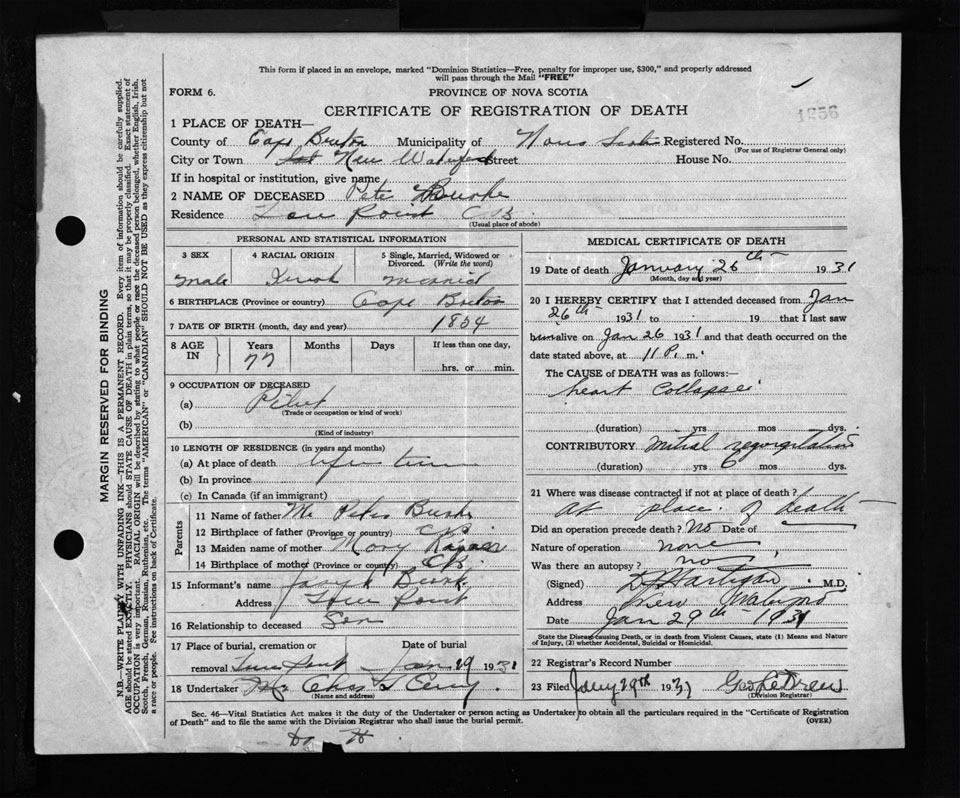 This form if placed in an envelope, marked "Dominion Statistics—Free, penalty for improper use, $300," and properly addressed
will pass through the Mail "FREE"
FORM 6.
PROVINCE OF NOVA SCOTIA
CERTIFICATE OF REGISTRATION OF DEATH
1 PLACE OF DEATH—
County of Cape Breton Municipality of Nova Scotia Registered No.
(For use of Registrar General only)
City or Town New Waterford Street House No.
If in hospital or institution, give name
2 NAME OF DECEASED Pete Burke
Residence Point C.B.
(Usual place of abode)
PERSONAL AND STATISTICAL INFORMATION
3 SEX 4 RACIAL ORIGIN 5 Single, Married, Widowed or Divorced. (Write the word)
Male Married
6 BIRTHPLACE (Province or country) Cape Breton
7 DATE OF BIRTH (month, day and year) 1854
8 AGE IN Years Months Days If less than one day,
77 hrs. or min.
9 OCCUPATION OF DECEASED
(a)
(Trade or occupation or kind of work)
(b)
(Kind of industry)
10 LENGTH OF RESIDENCE (in years and months)
(a) At place of death life time
(b) In province
(c) In Canada (if an immigrant)
Parents
11 Name of father Mr Peter Burke
12 Birthplace of father (Province or country) C.B.
13 Maiden name of mother Mary
14 Birthplace of mother (Province or country) C.B.
15 Informant's name Burke
Address Point
16 Relationship to deceased Son
17 Place of burial, cremation or Date of burial
removal Jan 29 1931
18 Undertaker Mr Chas
(Name and address)
MEDICAL CERTIFICATE OF DEATH
19 Date of death January 26th 1931
(Month, day and year)
20 I HEREBY CERTIFY that I attended deceased from Jan
26th 1931 to 19 that I last saw
him alive on Jan 26 1931 and that death occurred on the
date stated above, at 11 P. m.
The CAUSE of DEATH was as follows:—
heart collapse
(duration) yrs mos dys.
CONTRIBUTORY mitral regurgitation
(duration) yrs 6 mos dys.
21 Where was disease contracted if not at place of death?
at place of death
Did an operation precede death? No Date of
Nature of operation none
Was there an autopsy? no
(Signed) Hartigan M.D.
Address New Waterford
Date Jan 29th 1931
State the Disease causing Death, or in death from Violent Causes, state (1) Means and Nature of Injury, (2) whether Accidental, Suicidal or Homicidal.
22 Registrar's Record Number
23 Filed Jany 29th 1931
(Division Registrar)
Sec. 46—Vital Statistics Act makes it the duty of the Undertaker or person acting as Undertaker to obtain all the particulars required in the "Certificate of Registration
of Death" and to file the same with the Division Registrar who shall issue the burial permit.
(OVER)
MARGIN RESERVED FOR BINDING
N.B.—WRITE PLAINLY WITH UNFADING INK—THIS IS A PERMANENT RECORD. Every item of information should be carefully supplied.
AGE should be stated EXACTLY. PHYSICIANS should STATE CAUSE OF DEATH in plain terms, so that it may be properly classified. Exact statement of
OCCUPATION is very important. RACIAL ORIGIN will be described by stating to what people or race the deceased person belonged, whether English, Irish,
Scotch, French, German, Russian, Ruthenian, etc. The terms "AMERICAN" or "CANADIAN" SHOULD NOT BE USED as they express citizenship but not
a race or people. See instructions on back of Certificate.